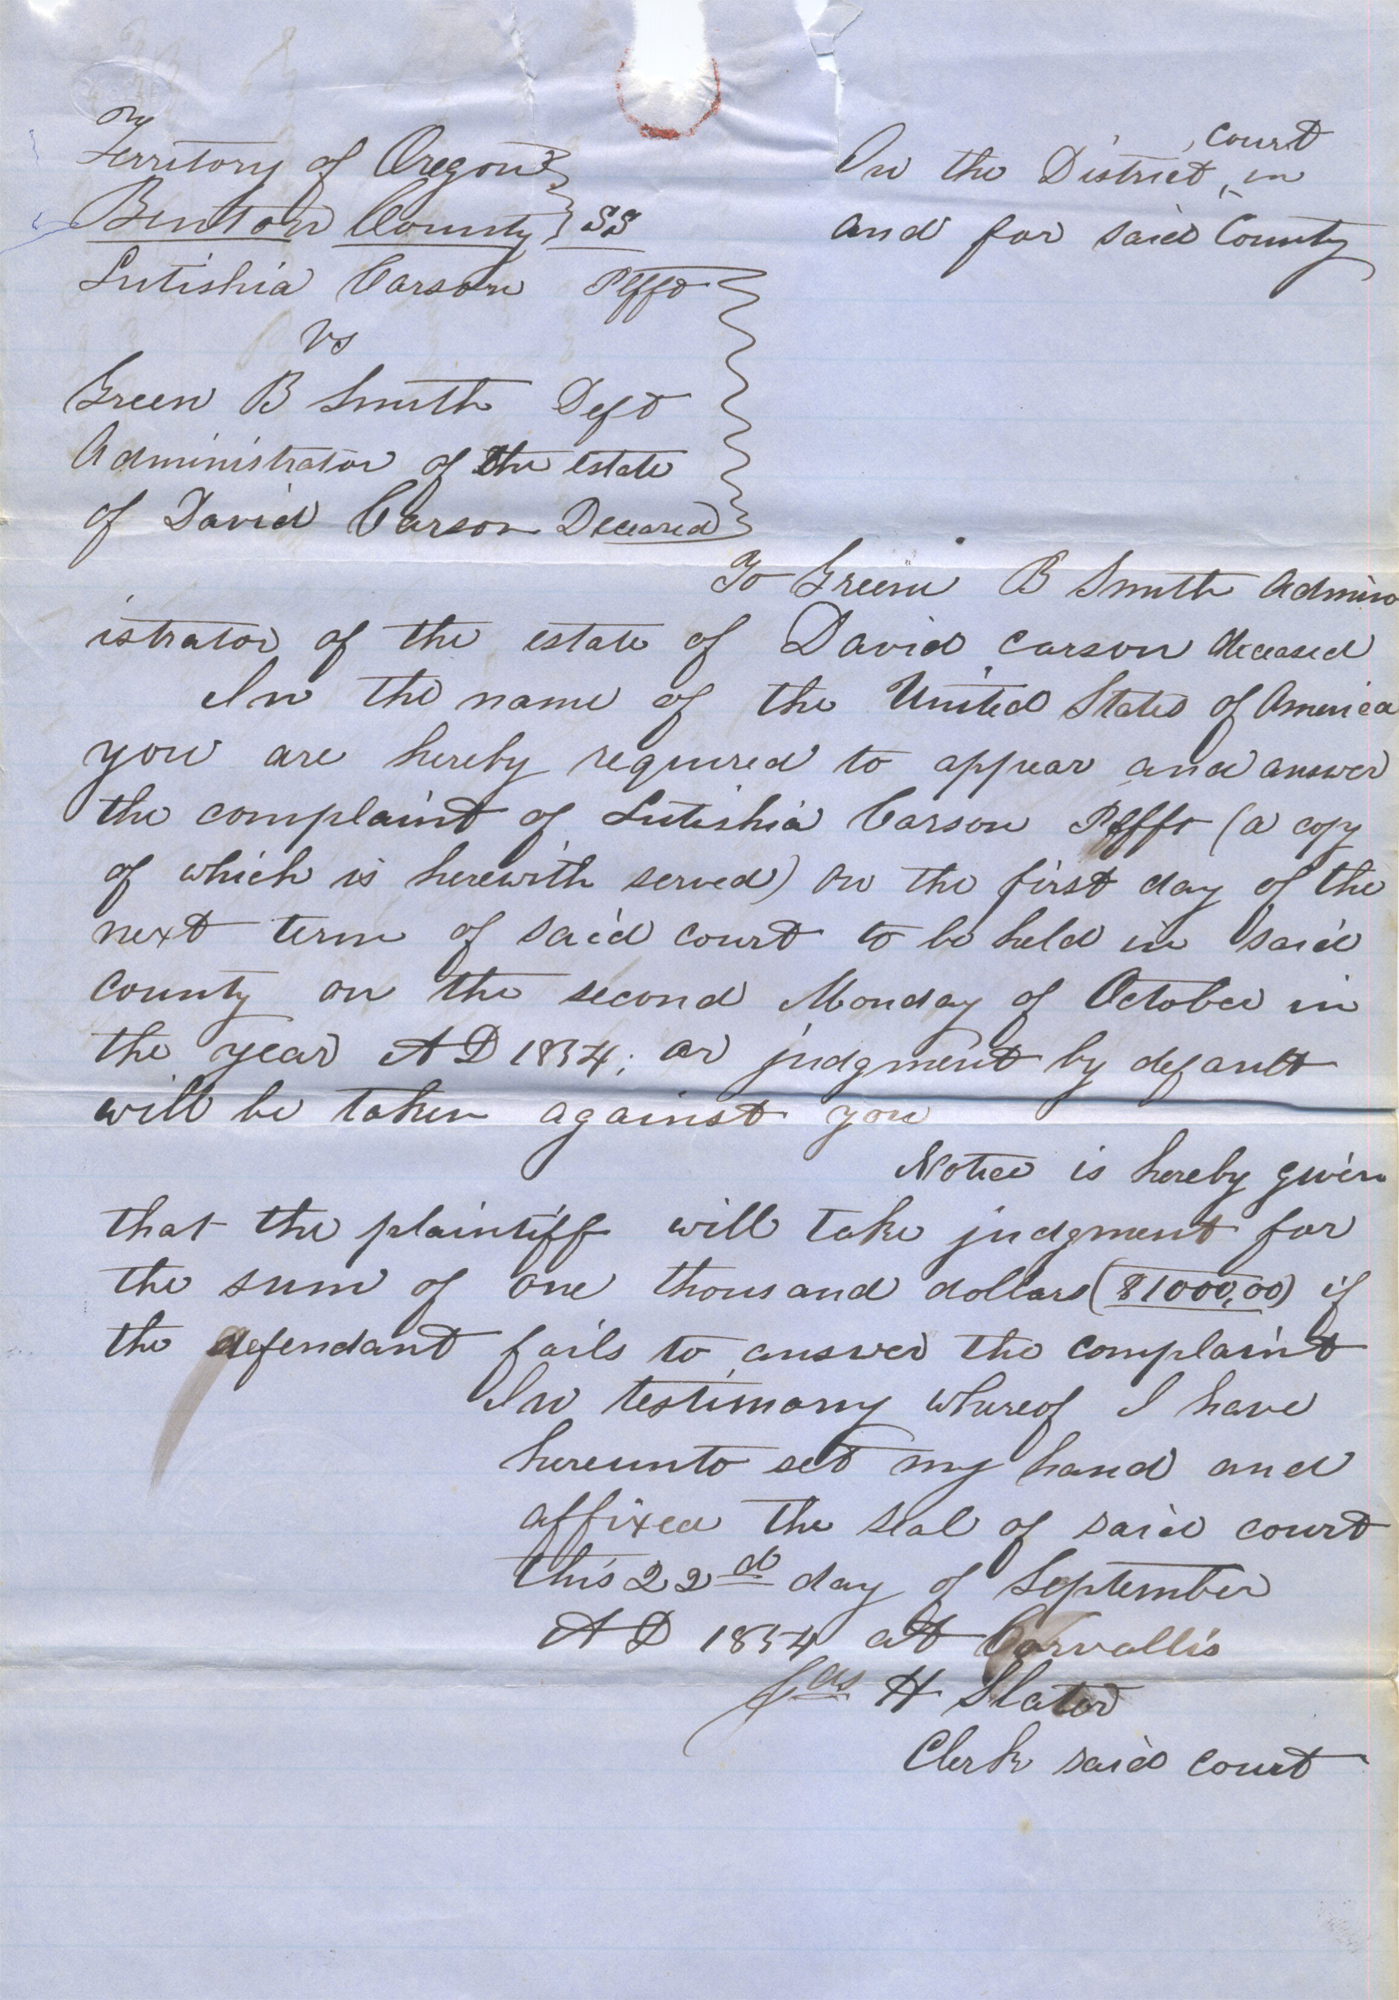 Territory of Oregon }
Benton County } SS
In the District court in
and for said County
Lutishia Carson Plffs
vs
Green B Smith Deft
Administrator of the estate
of David Carson Deceased
To Green B Smith Admin
istrator of the estate of David Carson deceased
In the name of the United States of America
you are hereby required to appear and answer
the complaint of Lutishia Carson Plffs (a copy
of which is herewith served) on the first day of the
next term of said court to be held in said
county on the second Monday of October in
the year A D 1854; or judgment by default
will be taken against you
Notice is hereby given
that the plaintiff will take judgment for
the sum of one thousand dollars ($1000,00) if
the defendant fails to answer the complaint
In testimony whereof I have
hereunto set my hand and
affixed the seal of said court
this 22nd day of September
A D 1854 at Corvallis
Jas H Slater
Clerk said court